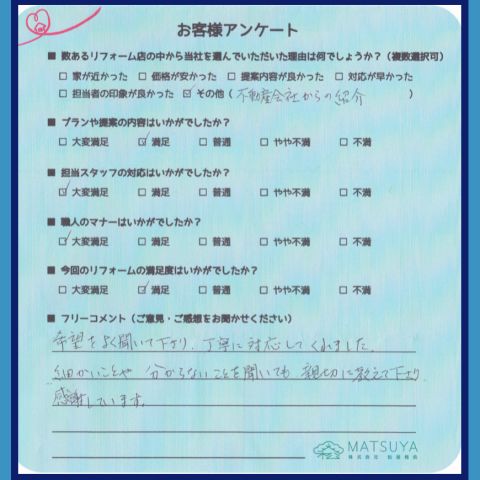 お客様アンケート
■ 数あるリフォーム店の中から当社を選んでいただいた理由は何でしょうか?(複数選択可)
□ 家が近かった □ 価格が安かった □ 提案内容が良かった □ 対応が早かった
□ 担当者の印象が良かった ☑ その他( 不動産会社からの紹介 )
■ プランや提案の内容はいかがでしたか?
□ 大変満足 ☑ 満足 □ 普通 □ やや不満 □ 不満
■ 担当スタッフの対応はいかがでしたか?
☑ 大変満足 □ 満足 □ 普通 □ やや不満 □ 不満
■ 職人のマナーはいかがでしたか?
☑ 大変満足 □ 満足 □ 普通 □ やや不満 □ 不満
■ 今回のリフォームの満足度はいかがでしたか?
□ 大変満足 ☑ 満足 □ 普通 □ やや不満 □ 不満
■ フリーコメント(ご意見・ご感想をお聞かせください)
希望をよく聞いて下さり、丁寧に対応してくれました。
細かいことや 分からないことを聞いても 親切に教えて下さり
感謝しています。
MATSUYA
株式会社